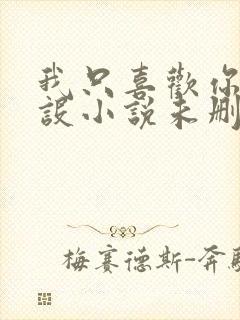 我只喜歡你
設小說未刪
梅賽德斯-奔馳